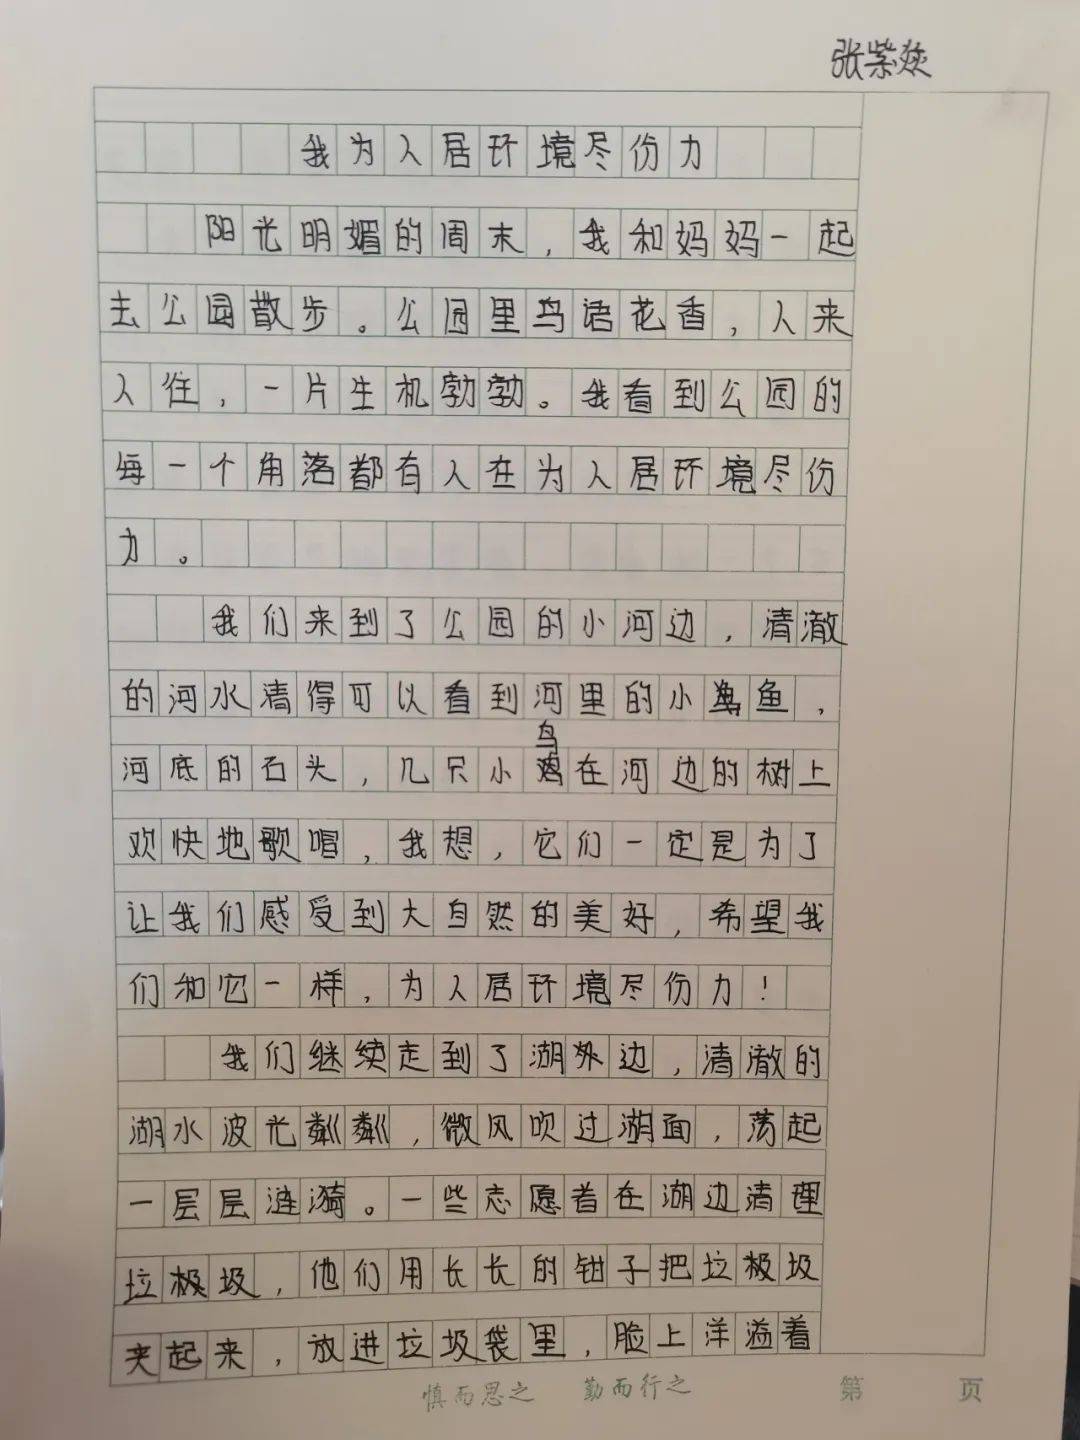 张紫焱
我为人居环境尽份力
阳光明媚的周末，我和妈妈一起
去公园散步。公园里鸟语花香，人来
人住，一片生机勃勃。我看到公园的
每一个角落都有人在为人居环境尽份
力。
我们来到了公园的小河边，清澈
的河水清得可以看到河里的小鱼，
鸟
河底的石头，几只小在河边的树上
欢快地歌唱，我想，它们一定是为了
让我们感受到大自然的美好，希望我
们和它一样，为人居环境尽份力！
我们继续走到了湖外边，清澈的
湖水波光粼粼，微风吹过湖面，荡起
一层层涟漪。一些志愿者在湖边清理
垃极圾，他们用长长的钳子把垃极圾
夹起来，放进垃圾袋里，脸上洋溢着
慎而思之 勤而行之 第 页